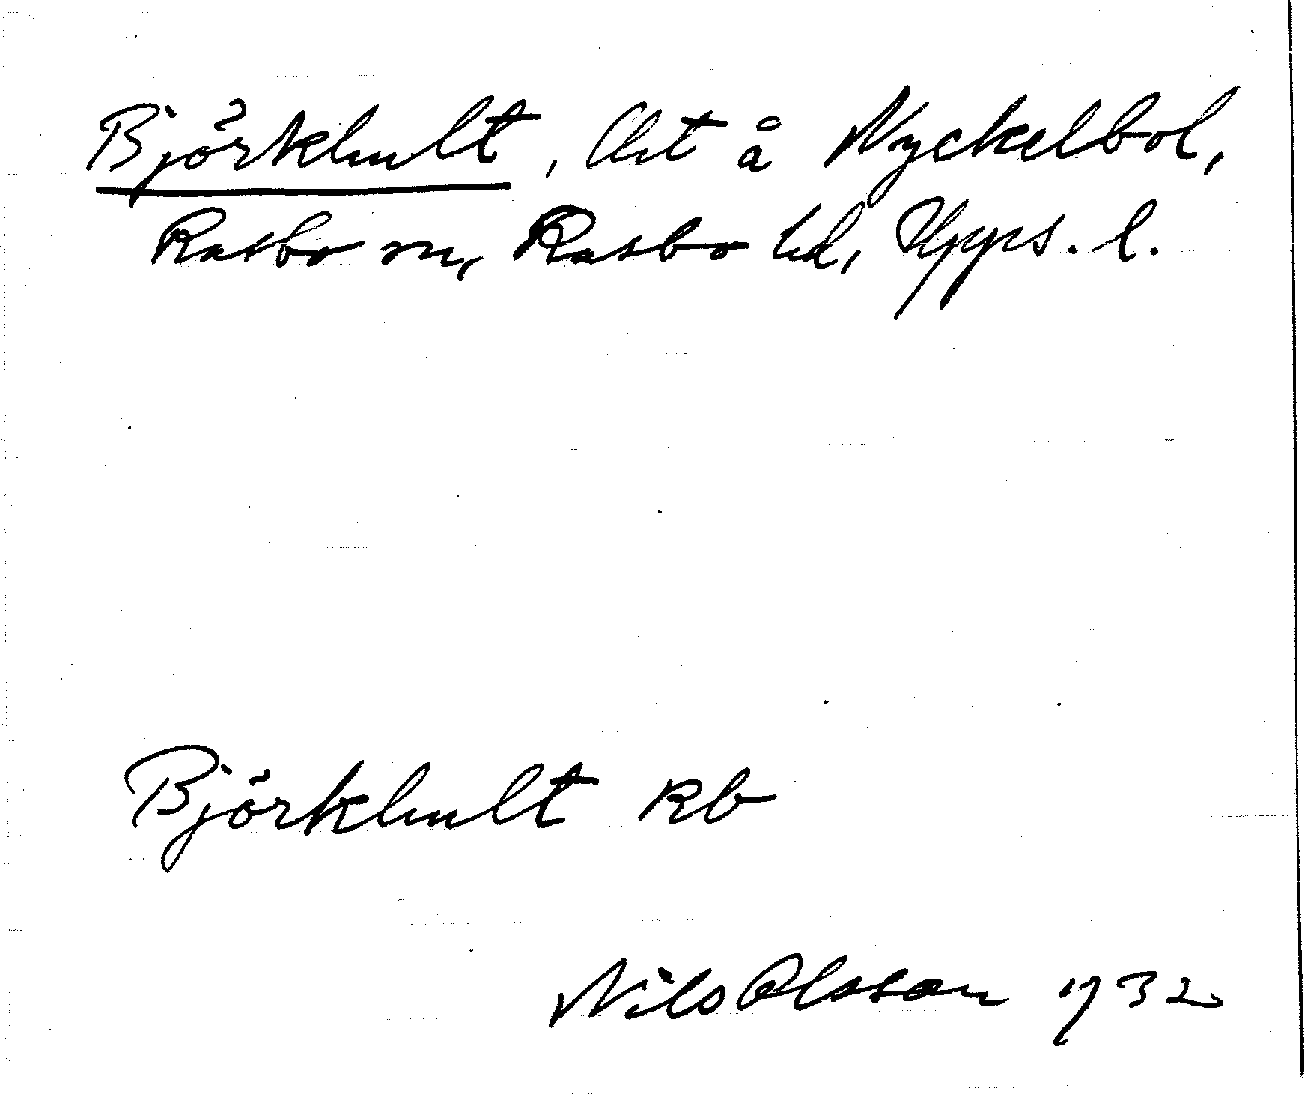 Björkhult, lht å Nyckelbol,
Rasbo sn, Rasbo hd, Upps. l.
Björkhult Rb
Nils Olsson 1932